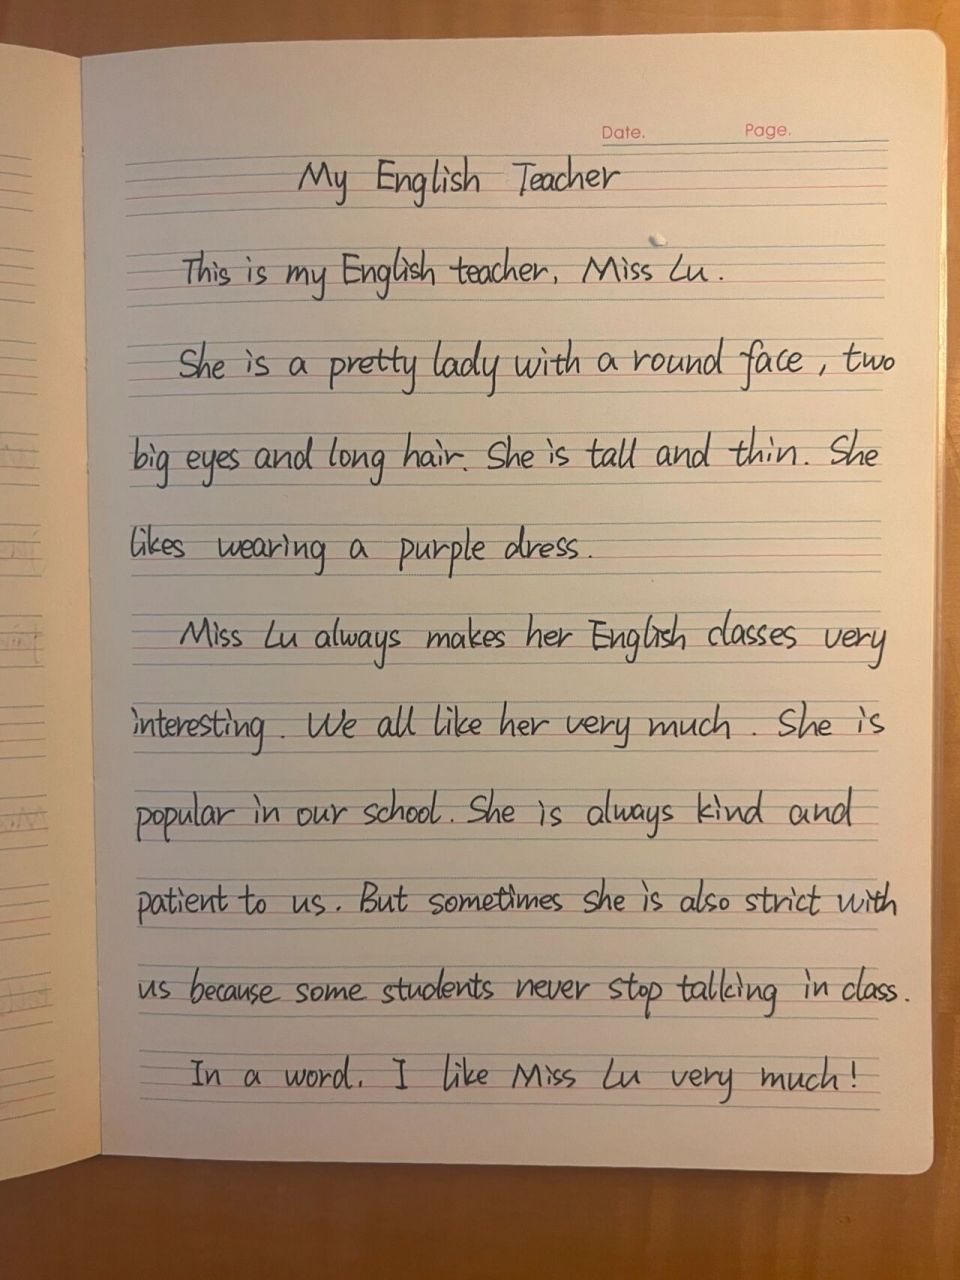 Date. Page.
My English Teacher
This is my English teacher, Miss Lu.
She is a pretty lady with a round face, two
big eyes and long hair. She is tall and thin. She
likes wearing a purple dress.
Miss Lu always makes her English classes very
interesting. We all like her very much. She is
popular in our school. She is always kind and
patient to us. But sometimes she is also strict with
us because some students never stop talking in class.
In a word, I like Miss Lu very much!